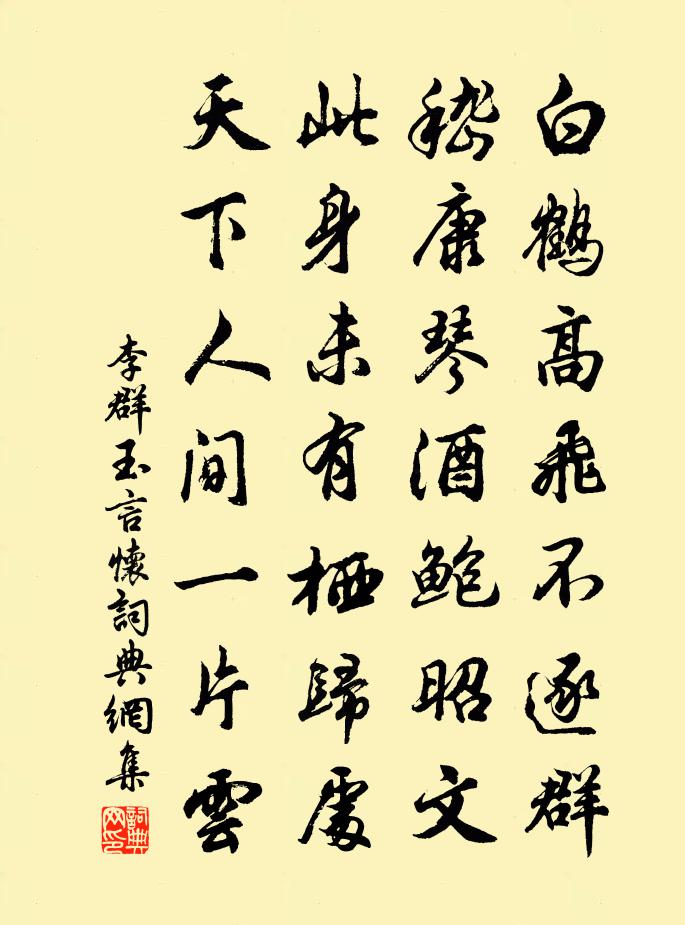 白鶴高飛不逐群
嵇康琴酒鮑昭文
此身未有栖歸處
天下人間一片雲
李群玉言懷詞典網集
詞典網印